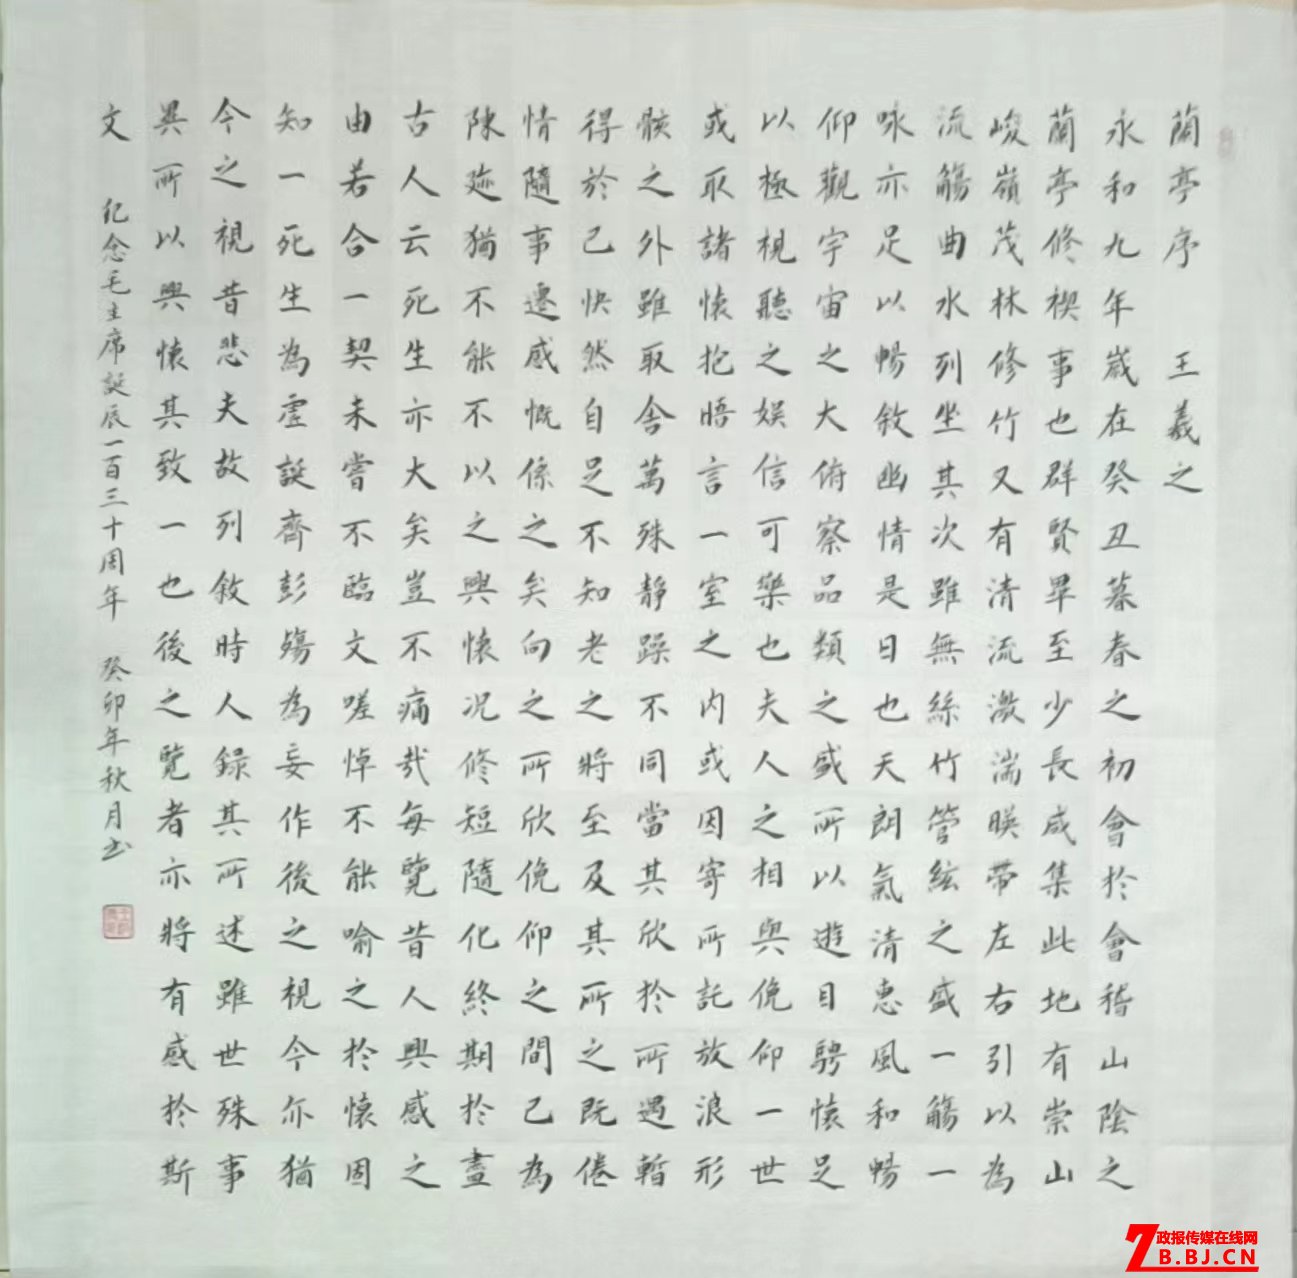 蘭亭序 王羲之
永和九年歲在癸丑暮春之初會於會稽山陰之
蘭亭修禊事也群賢畢至少長咸集此地有崇山
峻嶺茂林修竹又有清流激湍暎帶左右引以為
流觴曲水列坐其次雖無絲竹管絃之盛一觴一
咏亦足以暢敘幽情是日也天朗氣清惠風和暢
仰觀宇宙之大俯察品類之盛所以遊目騁懷足
以極視聽之娛信可樂也夫人之相與俛仰一世
或取諸懷抱晤言一室之內或因寄所託放浪形
骸之外雖取舍萬殊靜躁不同當其欣於所遇暫
得於己快然自足不知老之將至及其所之既倦
情隨事遷感慨係之矣向之所欣俛仰之間已為
陳迹猶不能不以之興懷况修短隨化終期於盡
古人云死生亦大矣豈不痛哉每覽昔人興感之
由若合一契未嘗不臨文嗟悼不能喻之於懷固
知一死生為虛誕齊彭殤為妄作後之視今亦猶
今之視昔悲夫故列敘時人錄其所述雖世殊事
異所以興懷其致一也後之覽者亦將有感於斯
文 紀念毛主席誕辰一百三十周年 癸卯年秋月书
政报传媒在线网
ZB.BJ.CN